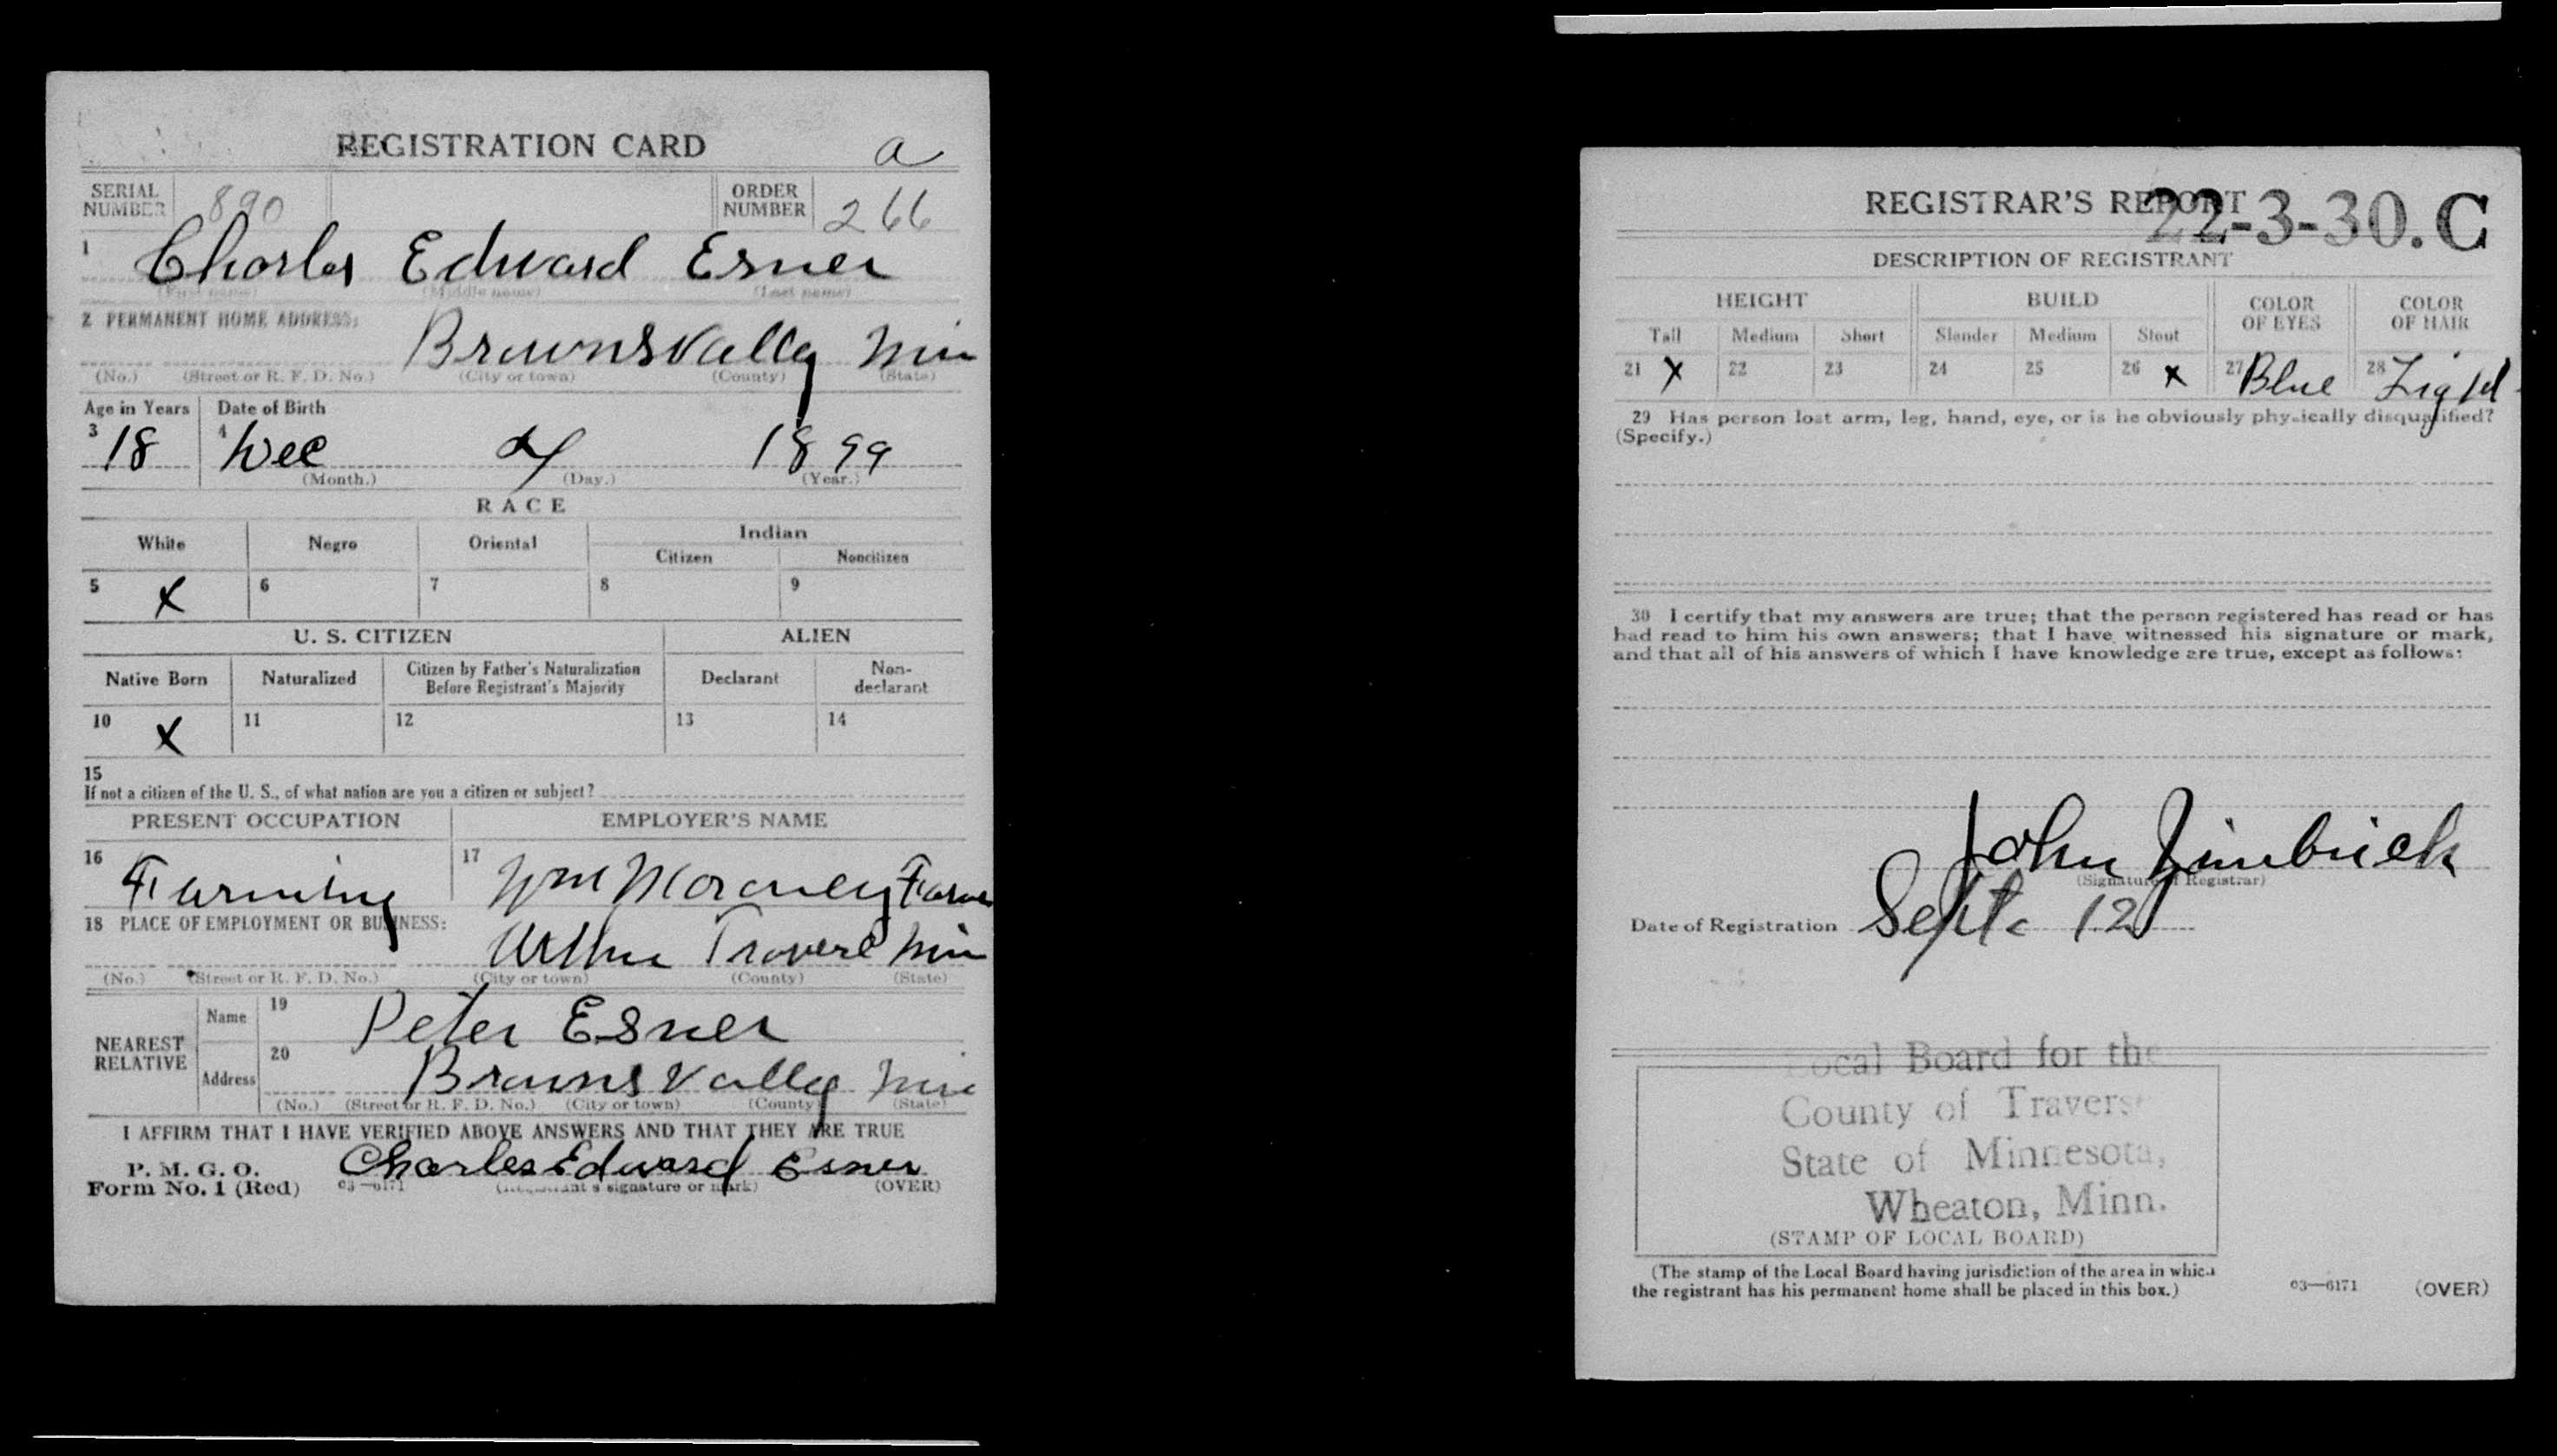 REGISTRATION CARD a
SERIAL NUMBER 890 ORDER NUMBER 266
1 Charles Edward Esner
(First name) (Middle name) (Last name)
2 PERMANENT HOME ADDRESS:
Browns Valley Min
(No.) (Street or R. F. D. No.) (City or town) (County) (State)
Age in Years Date of Birth
3 18 4 Dec 1899
(Month.) (Day.) (Year.)
RACE
White Negro Oriental Indian
Citizen Noncitizen
5 X 6 7 8 9
U. S. CITIZEN ALIEN
Native Born Naturalized Citizen by Father's Naturalization Before Registrant's Majority Declarant Non-declarant
10 X 11 12 13 14
15
If not a citizen of the U. S., of what nation are you a citizen or subject?
PRESENT OCCUPATION EMPLOYER'S NAME
16 Farming 17 Wm Farmer
18 PLACE OF EMPLOYMENT OR BUSINESS:
Arthur Traverse Min
(No.) (Street or R. F. D. No.) (City or town) (County) (State)
NEAREST RELATIVE
Name 19 Peter Esner
Address 20 Browns Valley Min
(No.) (Street or R. F. D. No.) (City or town) (County) (State)
I AFFIRM THAT I HAVE VERIFIED ABOVE ANSWERS AND THAT THEY ARE TRUE
P. M. G. O.
Form No. 1 (Red) 03—6171 Charles Edward Esner
(Registrant's signature or mark) (OVER)
REGISTRAR'S REPORT
22-3-30. C
DESCRIPTION OF REGISTRANT
HEIGHT BUILD COLOR OF EYES COLOR OF HAIR
Tall Medium Short Slender Medium Stout
21 X 22 23 24 25 26 X 27 Blue 28 Light
29 Has person lost arm, leg, hand, eye, or is he obviously physically disqualified?
(Specify.)
30 I certify that my answers are true; that the person registered has read or has
had read to him his own answers; that I have witnessed his signature or mark,
and that all of his answers of which I have knowledge are true, except as follows:
John Jimbrick
(Signature of Registrar)
Date of Registration Sept. 12
Local Board for the
County of Traverse
State of Minnesota,
Wheaton, Minn.
(STAMP OF LOCAL BOARD)
(The stamp of the Local Board having jurisdiction of the area in which
the registrant has his permanent home shall be placed in this box.)
03—6171 (OVER)